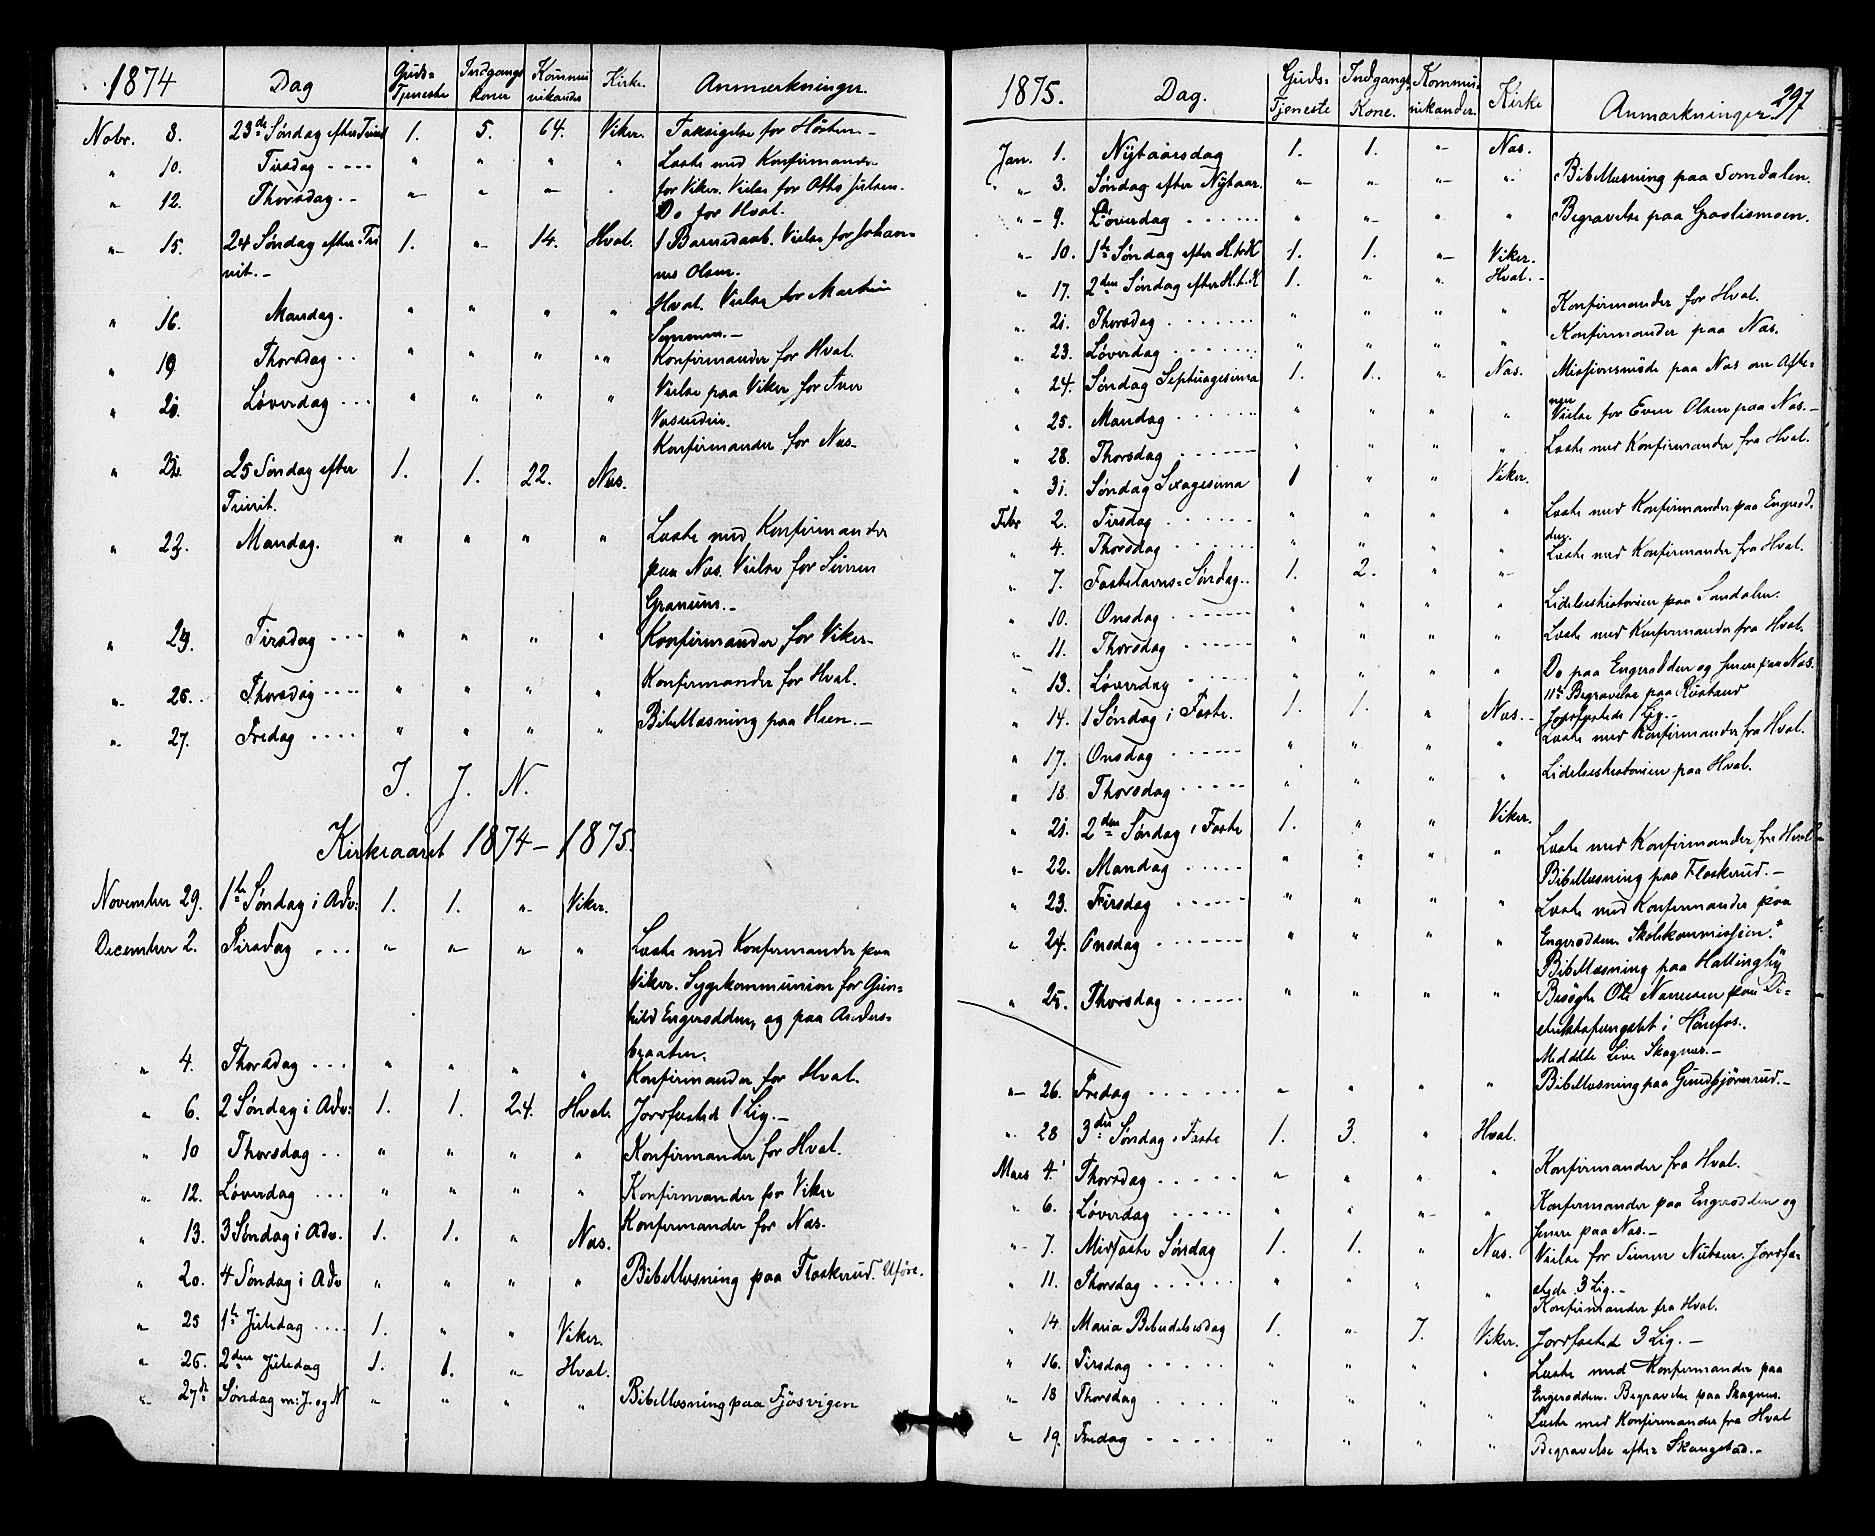 1874 Dag Guds= Tjeneste Indgangs koner Kommu nikander Kirke. Anmærkninger.
Novbr. 8. 23de Søndag efter Trinit 1. 5. 64. Viker. Taksigelse for Høsten.-
" 10. Tirsdag " " " " Læste med Konfirmander
for Viker. Vielse for Otto Julsen.
" 12. Thorsdag " " " " Do for Hval.
" 15. 24 Søndag efter Tri 1. " 14. Hval. 1 Barnedaab. Vielse for Johan-
nit.- nes Olsen.
" 16. Mandag. " " " " Hval. Vielse for Martin
" 19 Thorsdag " " " " Konfirmander for Hval.
" 21. Løverdag " " " " Vielse paa Viker for Iver
Konfirmander for Næs.
" 22. 25 Søndag efter 1. 1. 22. Næs.
Trinit.
" 23. Mandag. " " " " Læste med Konfirmander
paa Næs. Vielse for Simen
Granum.-
" 24. Tirsdag " " " " Konfirmander for Viker-
" 26. Thorsdag " " " " Konfirmander for Hval.
" 27. Fredag " " " " Bibellæsning paa Heen.-
I. J. N.
Kirkeaaret 1874-1875.
November 29. 1te Søndag i Adv: 1. 1. " Viker.
December 2. Tirsdag " " " " Læste med Konfirmander paa
Viker. Sygekommunion for Gun-
hild Engerodden, og paa Anders-
braaten.
" 4. Thorsdag " " " " Konfirmander for Hval.
" 6. 2 Søndag i Adv: 1. 1. 24. Hval. Jordfæsted 1 Lig.-
" 10 Thorsdag " " " " Konfirmander for Hval.
" 12. Løverdag " " " " Konfirmander for Viker
Konfirmander for Næs.
" 13. 3 Søndag i Adv. 1. 1. " Næs.
" 20. 4 Søndag i Adv " " " " Bibellæsning paa Flaskerud. Uføre.
" 25 1te Juledag 1. " " Viker.
" 26. 2den Juledag 1. 1. " Hval.
" 27de Søndag m: J. og N " " " " Bibellæsning paa Fjøsvigen
1875. Dag. Guds= Tjeneste Indgangs Kone. Kommu- nikander Kirke Anmærkninger 297
Jan. 1. Nytaarsdag 1. 1. " Næs.
" 3. Søndag efter Nytaar. " " " " Bibellæsning paa Somdalen.
" 9. Løverdag " " " " Begravelse paa Graslismoen.
" 10. 1te Søndag efter H.t.K 1. 1. " Viker.
" 17. 2den Søndag efter H.t.K 1. " " Hval.
" 21. Thorsdag " " " " Konfirmander for Hval.
" 23. Løverdag " " " " Konfirmander paa Næs.
" 24. Søndag Septuagesima 1. 1. " Næs. Missionsmøde paa Næs om Afte-
nen
" 25. Mandag " " " " Vielse for Even Olsen paa Næs.-
" 28. Thorsdag " " " " Læste med Konfirmander fra Hval.
" 31. Søndag Sexagesima 1 " " Viker.
Febr 2. Tirsdag " " " " Læste med Konfirmander paa Engerod-
den.
" 4. Thorsdag " " " " Læste med Konfirmander fra Hval.
" 7. Fastelavns=Søndag 1. 2. " "
" 10. Onsdag " " " " Lidelseshistorien paa Somdalen.
" 11. Thorsdag " " " " Læste med Konfirmander fra Hval.
" 13. Løverdag " " " " Do paa Engerodden og senere paa Næs.
11te Begravelse paa Rustand
" 14. 1 Søndag i Faste. 1. 1. " Næs.- Jordfæstede 1 Lig.-
" 17. Onsdag " " " " Læste med Konfirmander fra Hval.
" 18. Thorsdag " " " " Lidelseshistorien paa Hval.
" 21. 2den Søndag i Faste 1. " " Viker.
" 22. Mandag " " " " Læste med Konfirmander fra Hval
Bibellæsning paa Flaskerud.-
" 23. Tirsdag " " " " Læste med Konfirmander paa
" 24. Onsdag " " " " Engerodden. Skolekommission.
Bibellæsning paa Hallingby
" 25. Thorsdag " " " " Besøgte Ole paa Di-
striktsfængslet i Hønefos.
Meddelte Live Skagnæs.-
" 26. Fredag " " " " Bibellæsning paa Gundbjørnrud.-
" 28 3die Søndag i Faste 1. 3. " Hval.
Mars 4. Thorsdag " " " " Konfirmander fra Hval.
" 6. Løverdag " " " " Konfirmander paa Engerodden og
senere paa Næs.-
" 7. Midfaste Søndag 1. 1. " Næs. Vielse for Simen Nubsen. Jordfæ-
stede 3 Lig.-
" 11. Thorsdag " " " " Konfirmander fra Hval.
" 14. Maria Bebudelsesdag 1. " 7. Viker. Jordfæsted 3 Lig.-
" 16. Tirsdag " " " " Læste med Konfirmander paa
Engerodden. Begravelse paa Skagnæs.
" 18 Thorsdag " " " " Læste med Konfirmander fra Hval
" 19. Fredag " " " " Begravelse efter Skangstad.-